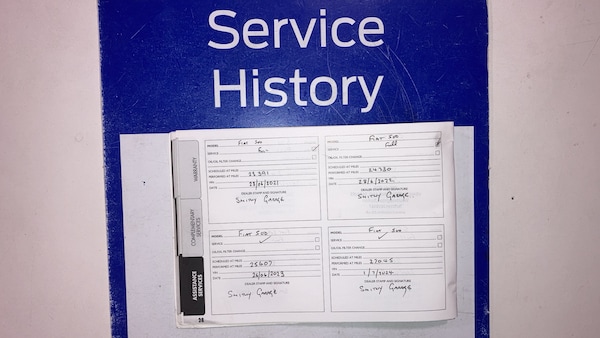 Service
History
WARRANTY
COMPLEMENTARY
SERVICES
ASSISTANCE
SERVICES
38
MODEL Fiat 500
SERVICE
OIL/OIL FILTER CHANGE
SCHEDULED AT MILES
PERFORMED AT MILES
DATE 23/06/2021
DEALER STAMP AND SIGNATURE
Smithy Garage
MODEL Fiat 500
SERVICE Full
OIL/OIL FILTER CHANGE
SCHEDULED AT MILES
PERFORMED AT MILES 24320
DATE 28/6/2022
DEALER STAMP AND SIGNATURE
Smithy Garage
MODEL Fiat 500
SERVICE ✓
OIL/OIL FILTER CHANGE
SCHEDULED AT MILES
PERFORMED AT MILES 25607
DATE 26/06/2023
DEALER STAMP AND SIGNATURE
Smithy Garage
MODEL Fiat 500
SERVICE ✓
OIL/OIL FILTER CHANGE
SCHEDULED AT MILES
PERFORMED AT MILES 27045
DATE 1/7/2024
DEALER STAMP AND SIGNATURE
Smithy Garage